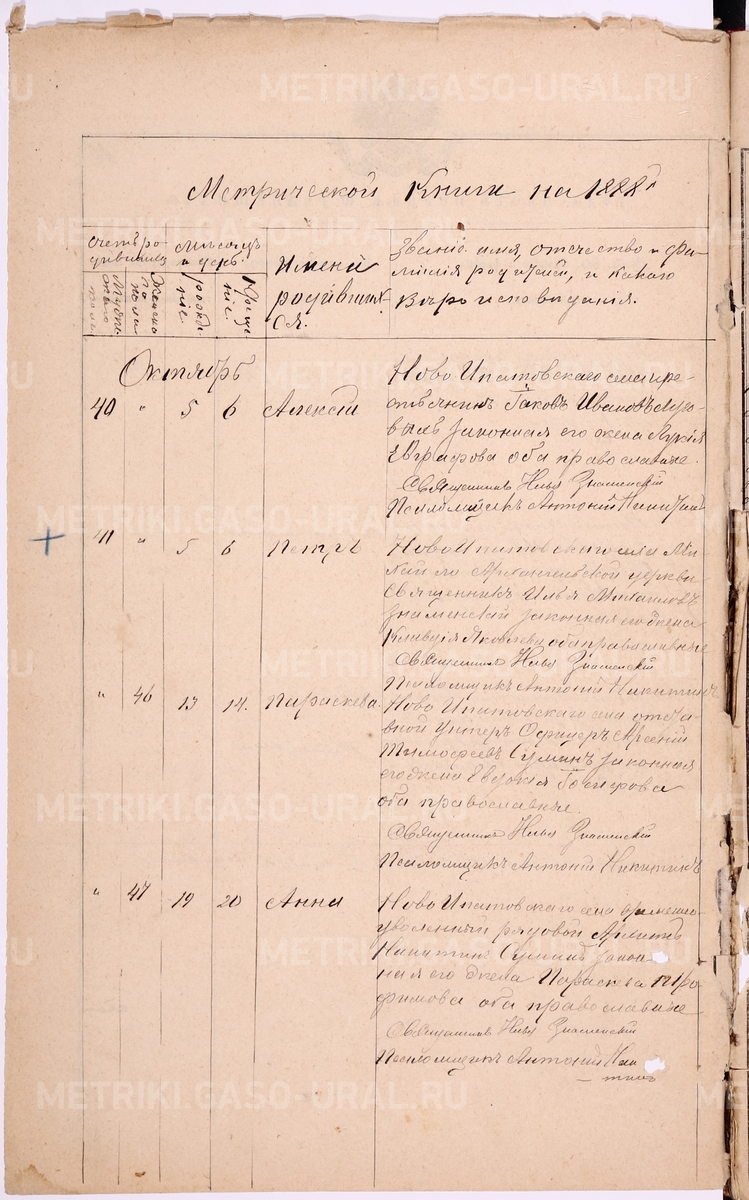 Метрической Книги на 1888 г
Счетъ ро-
дившихся
Мужска-
го пола
Женска-
го пола
Месяцъ
и день.
рожде
ніе.
Креще
ніе.
Имена
родивших-
ся.
Званіе имя, отчество и фа-
милія родителей, и какого
Вероисповеданія.
Октябрь
40 " 5 6 Алексѣй
Ново Ипатовскаго села кре-
стьянинъ Іаковъ Ивановъ
законная его жена Лукія
Евграфова оба православные.
Священникъ Илья Знаменский
Псаломщикъ Антоний Никитинъ
41 " 5 6 Петръ
Ново Ипатовскаго села Ми-
хайло Архангельской церкви
Священникъ Илья Михаиловъ
Знаменский законная его жена
Клавдія Яковлева оба православные
Священникъ Илья Знаменский
Псаломщикъ Антоний Никитинъ
" 46 13 14. Параскева.
Ново Ипатовскаго села отста-
вной Унтеръ Офицеръ Арсений
Тимофеевъ Сулинъ законная
его жена Евдокія
оба православные.
Священникъ Илья Знаменский
Псаломщикъ Антоний Никитинъ
" 47 19 20 Анна
Ново Ипатовскаго села временно
уволенный рядовой
Никитинъ Сулинъ закон-
ная его жена Параскева Тро
фимова оба православные
Священникъ Илья Знаменский
Псаломщикъ Антоний Ники
тинъ
METRIKI.GASO-URAL.RU